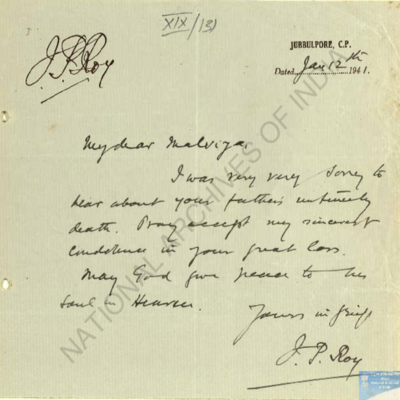 XIX/(3)
J. P. Roy
JUBBULPORE, C.P.
Dated Jan 12th 1941.
My dear Malviya,
I was very very sorry to
hear about your father's untimely
death. Pray accept my sincerest
condolence in your great loss.
May God give peace to his
soul in Heaven.
Yours in grief
J. P. Roy
NATIONAL ARCHIVES OF INDIA